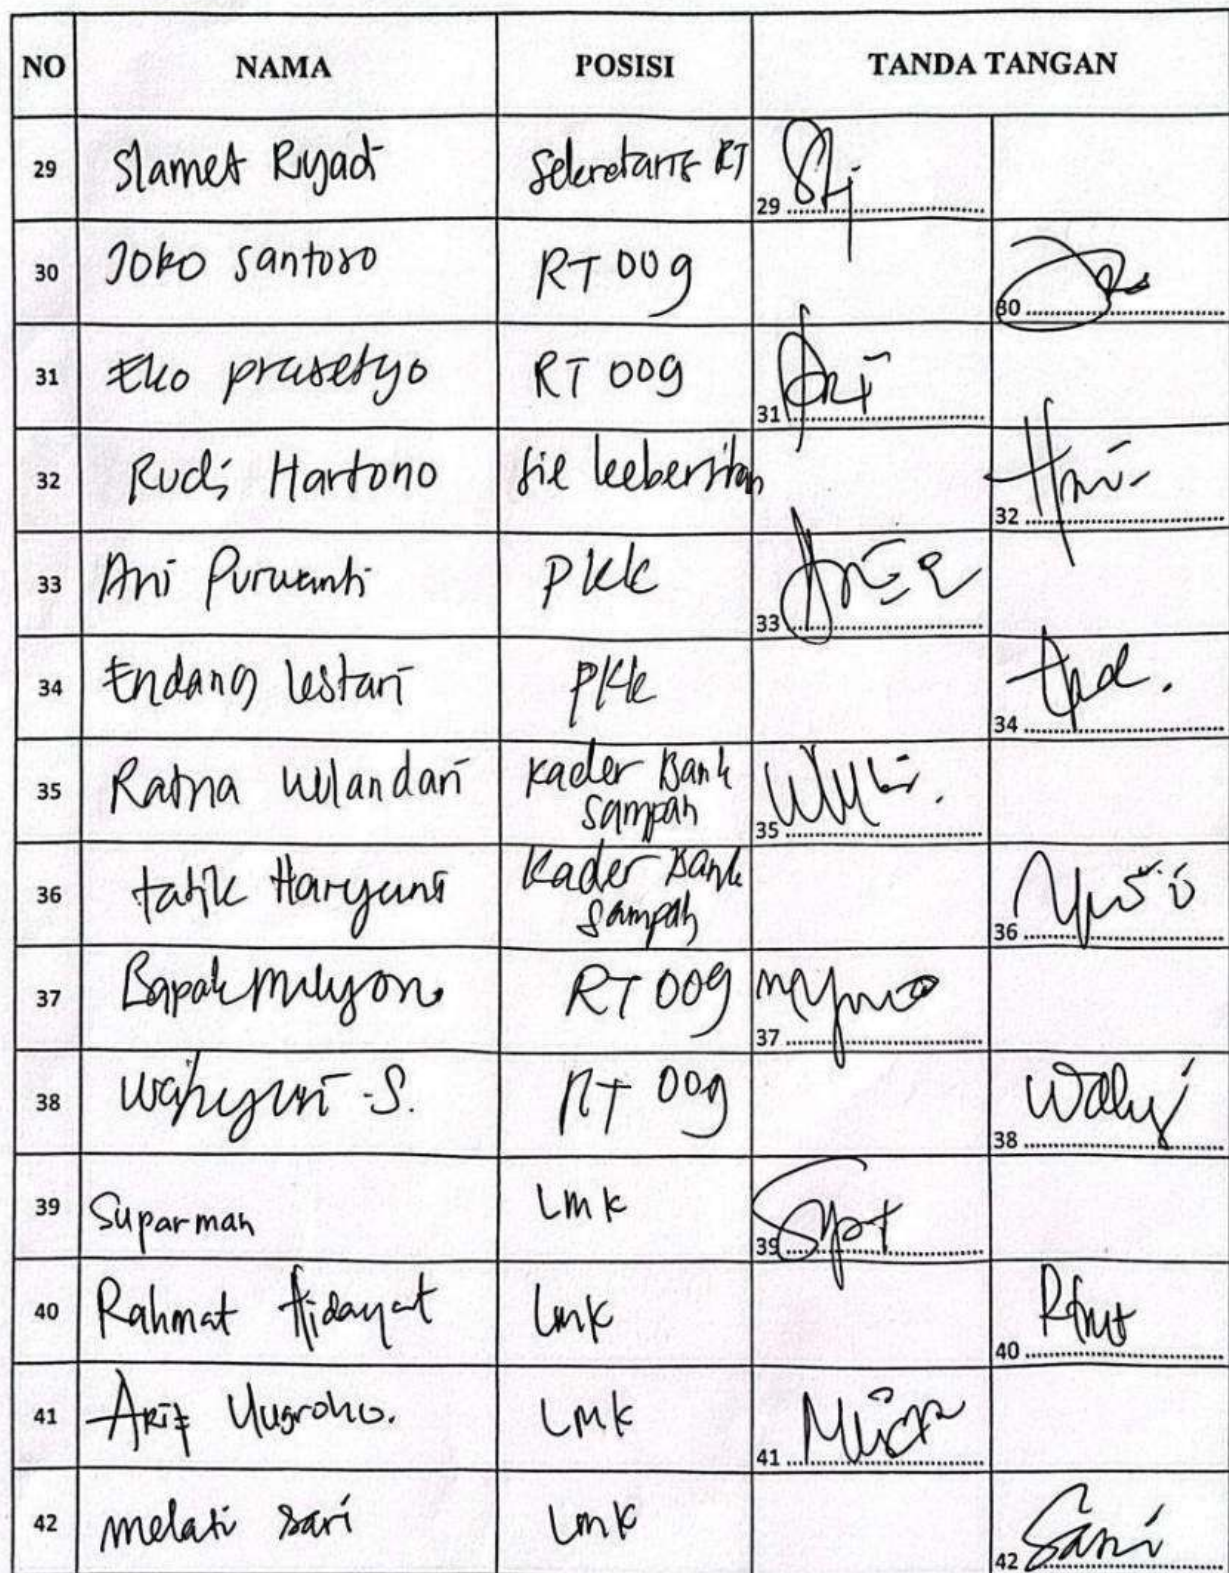 NO NAMA POSISI TANDA TANGAN
29 Slamet Riyadi Sekretaris RT 29
30 Joko Santoso RT 009 30
31 Eko prasetyo RT 009 31
32 Rudi Hartono sie kebersihan 32
33 Ani Purwanti PKK 33
34 Endang Lestari PKK 34
35 Ratna Wulandari Kader Bank
sampah 35
36 tatik Haryuni Kader Bank
sampah 36
37 Bapak Mulyono RT 009 37
38 Wahyuni -S. RT 009 38 Wahy
39 Suparman Lmk 39
40 Rahmat Hidayat Lmk 40
41 Arif Nugroho. Lmk 41
42 melati sari Lmk 42 Sari